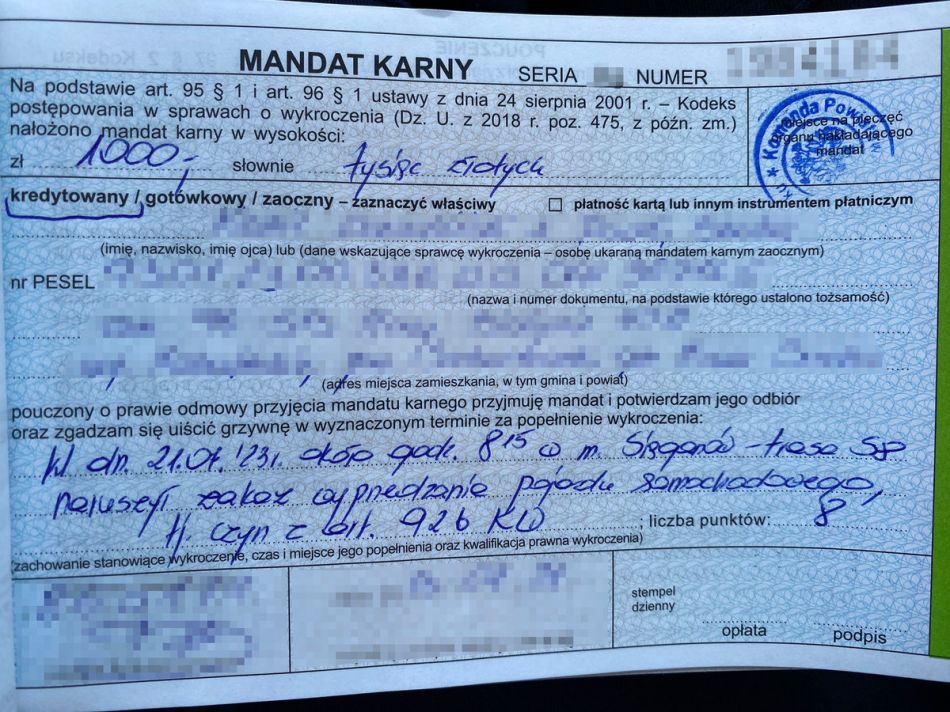 MANDAT KARNY SERIA NUMER
Na podstawie art. 95 § 1 i art. 96 § 1 ustawy z dnia 24 sierpnia 2001 r. – Kodeks
postępowania w sprawach o wykroczenia (Dz. U. z 2018 r. poz. 475, z późn. zm.)
nałożono mandat karny w wysokości:
zł 1000,- słownie tysiąc złotych
Komenda Pow
miejsce na pieczęć
organu nakładającego
mandat
kredytowany / gotówkowy / zaoczny – zaznaczyć właściwy
płatność kartą lub innym instrumentem płatniczym
(imię, nazwisko, imię ojca) lub (dane wskazujące sprawcę wykroczenia – osobę ukaraną mandatem karnym zaocznym)
nr PESEL
(nazwa i numer dokumentu, na podstawie którego ustalono tożsamość)
(adres miejsca zamieszkania, w tym gmina i powiat)
pouczony o prawie odmowy przyjęcia mandatu karnego przyjmuję mandat i potwierdzam jego odbiór
oraz zgadzam się uiścić grzywnę w wyznaczonym terminie za popełnienie wykroczenia:
W dn. 21.07.'23r. około godz. 8 15 w m. trasa S8
naruszył zakaz wyprzedzania pojazdu samochodowego,
tj. czyn z art. 92b KW ; liczba punktów: 8
(zachowanie stanowiące wykroczenie, czas i miejsce jego popełnienia oraz kwalifikacja prawna wykroczenia)
stempel
dzienny
opłata podpis